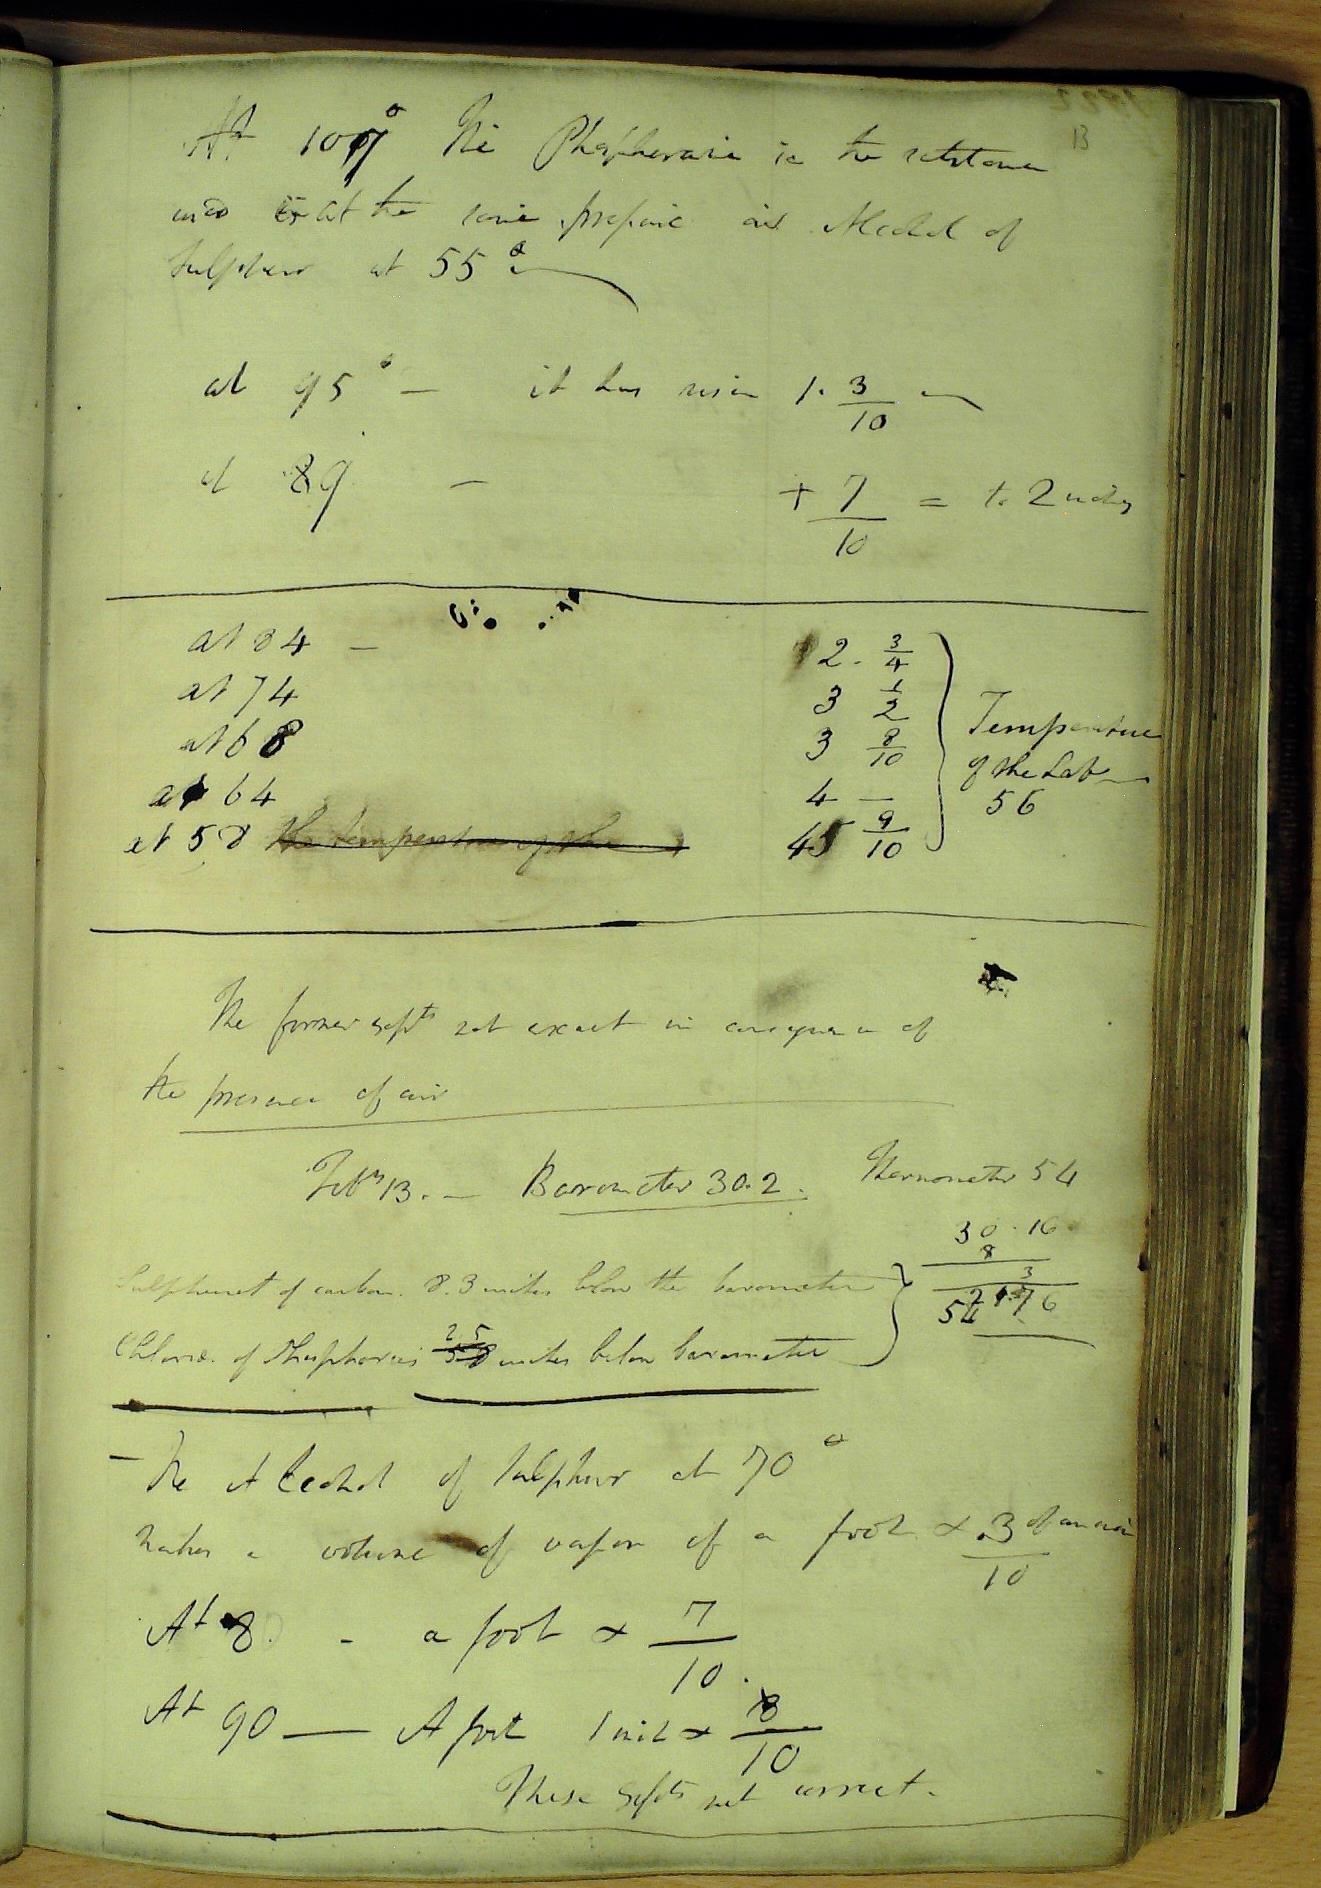 13
At 107° the Phosphorane in the
was at the same pressure as Alcohol of
Sulphur at 55°
at 95° — it has risen 1. 3/10
at 89 — + 7/10 = to 2 inches
at 84 — 2. 3/4
at 74 3 1/2
at 68 3 8/10
at 64 4 —
at 58 the temperature of the 4 9/10
Temperature
of the Lab
56
The former expts not exact in consequence of
the presence of air
Feby 13. — Barometer 30.2. Thermometer 54
30.16
8 3
Sulphuret of carbon. 8.3 inches below the barometer
Chloride of Phosphorus 2 5 inches below barometer
– The Alcohol of Sulphur at 70°
makes a volume of vapor of a foot & .3/10 of an inch
At 8 - a foot & 7/10.
At 90 — A foot 1 inch & 8/10
These expts not correct.